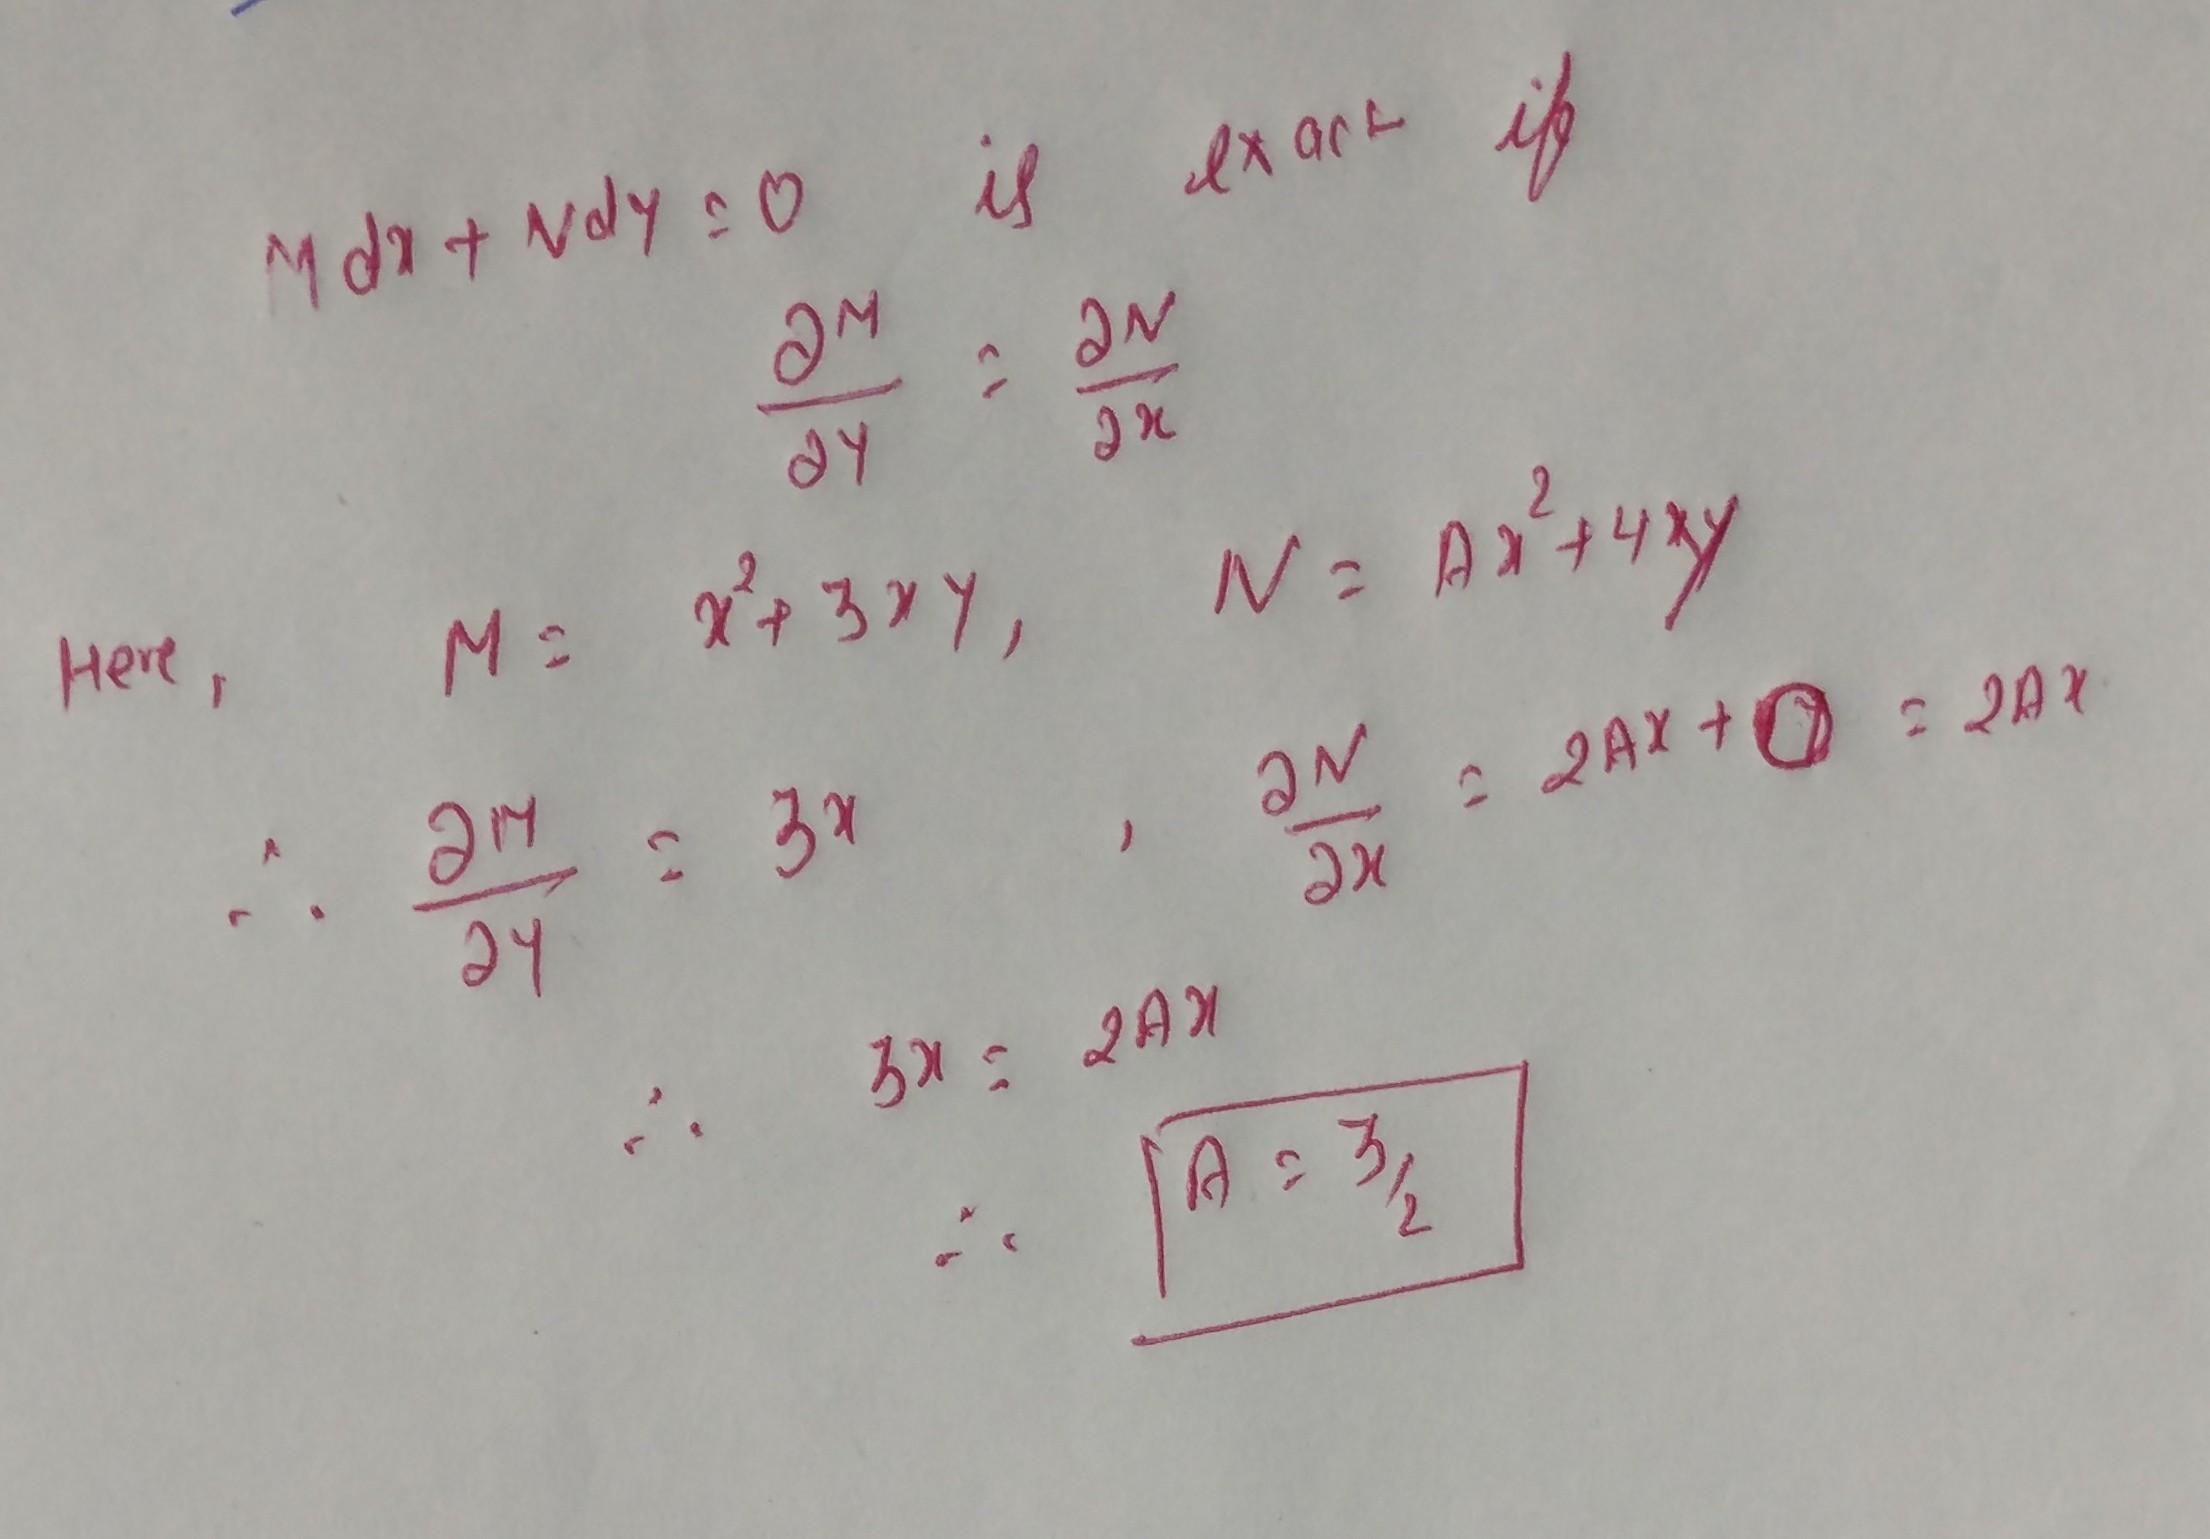 Mdx + Ndy = 0 is exact if
∂M/∂y = ∂N/∂x
Here, M = x² + 3xy, N = Ax² + 4xy
∴ ∂M/∂y = 3x , ∂N/∂x = 2Ax + 0 = 2Ax
∴ 3x = 2Ax
∴ A = 3/2